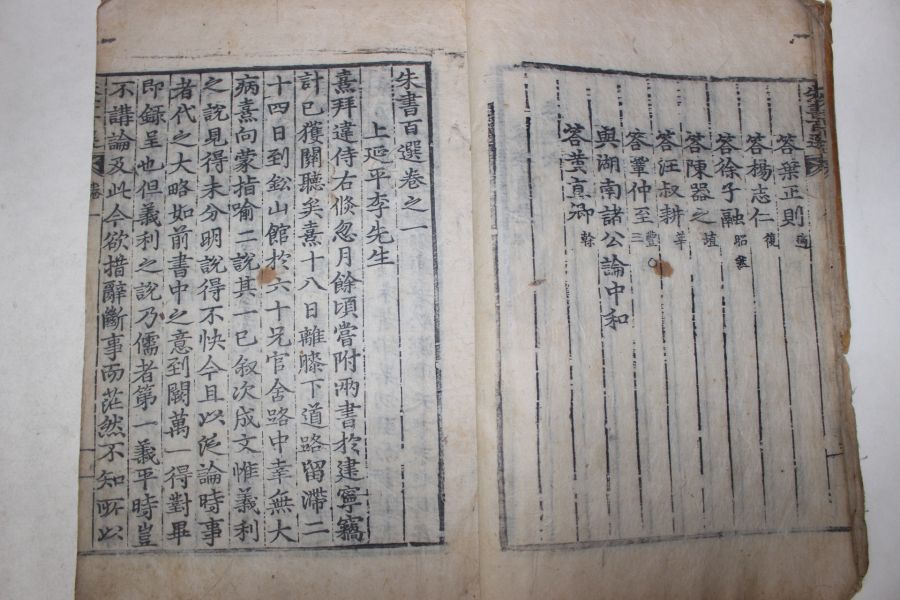 答葉正則 適
答楊志仁 復
答徐子融 昭然
答陳器之 埴
答汪叔耕 莘
答鞏仲至 豐 三
與湖南諸公論中和
答黃直卿 榦
朱書百選卷之一
上延平李先生
熹拜違侍右倐忽月餘頃嘗附兩書於建寧竊
計已獲關聽矣熹十八日離膝下道路留滯二
十四日到鈆山館於六十兄官舍路中幸無大
病熹向蒙指喻二說其一已叙次成文惟義利
之說見得未分明說得不快今且以泛論時事
者代之大略如前書中之意到闕萬一得對畢
即錄呈也但義利之說乃儒者第一義平時豈
不講論及此今欲措辭斷事而茫然不知所以